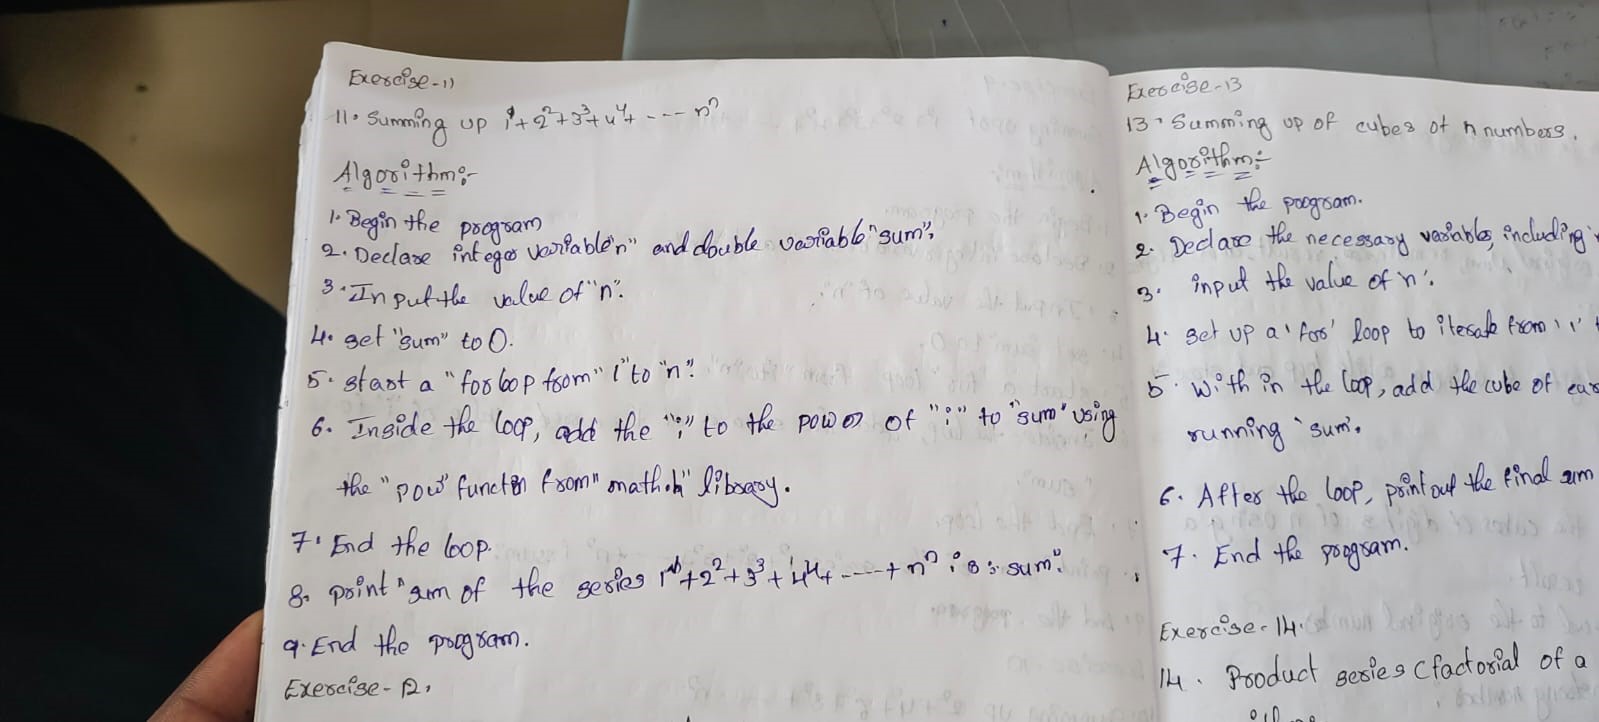 Exercise-11
11. Summing up 1¹+2²+3³+4⁴+ --- nⁿ
Algorithm:-
1. Begin the program
2. Declare integer variable "n" and double variable "sum";
3. Input the value of "n".
4. set "sum" to 0.
5. start a "for loop from "i" to "n".
6. Inside the loop, add the "i" to the power of "i" to "sum" using
the "pow" function from "math.h" library.
7. End the loop.
8. print "sum of the series 1+2²+3³+4⁴+----+nⁿ is: sum".
9. End the program.
Exercise-12.
Exercise-13
13. Summing up of cubes of n numbers.
Algorithm:-
1. Begin the program.
2. Declare the necessary variables, including
3. input the value of 'n'.
4. set up a 'for' loop to iterate from '1'
5. With in the loop, add the cube of
running 'sum'.
6. After the loop, print out the final sum
7. End the program.
Exercise-14.
14. Product series (factorial of a